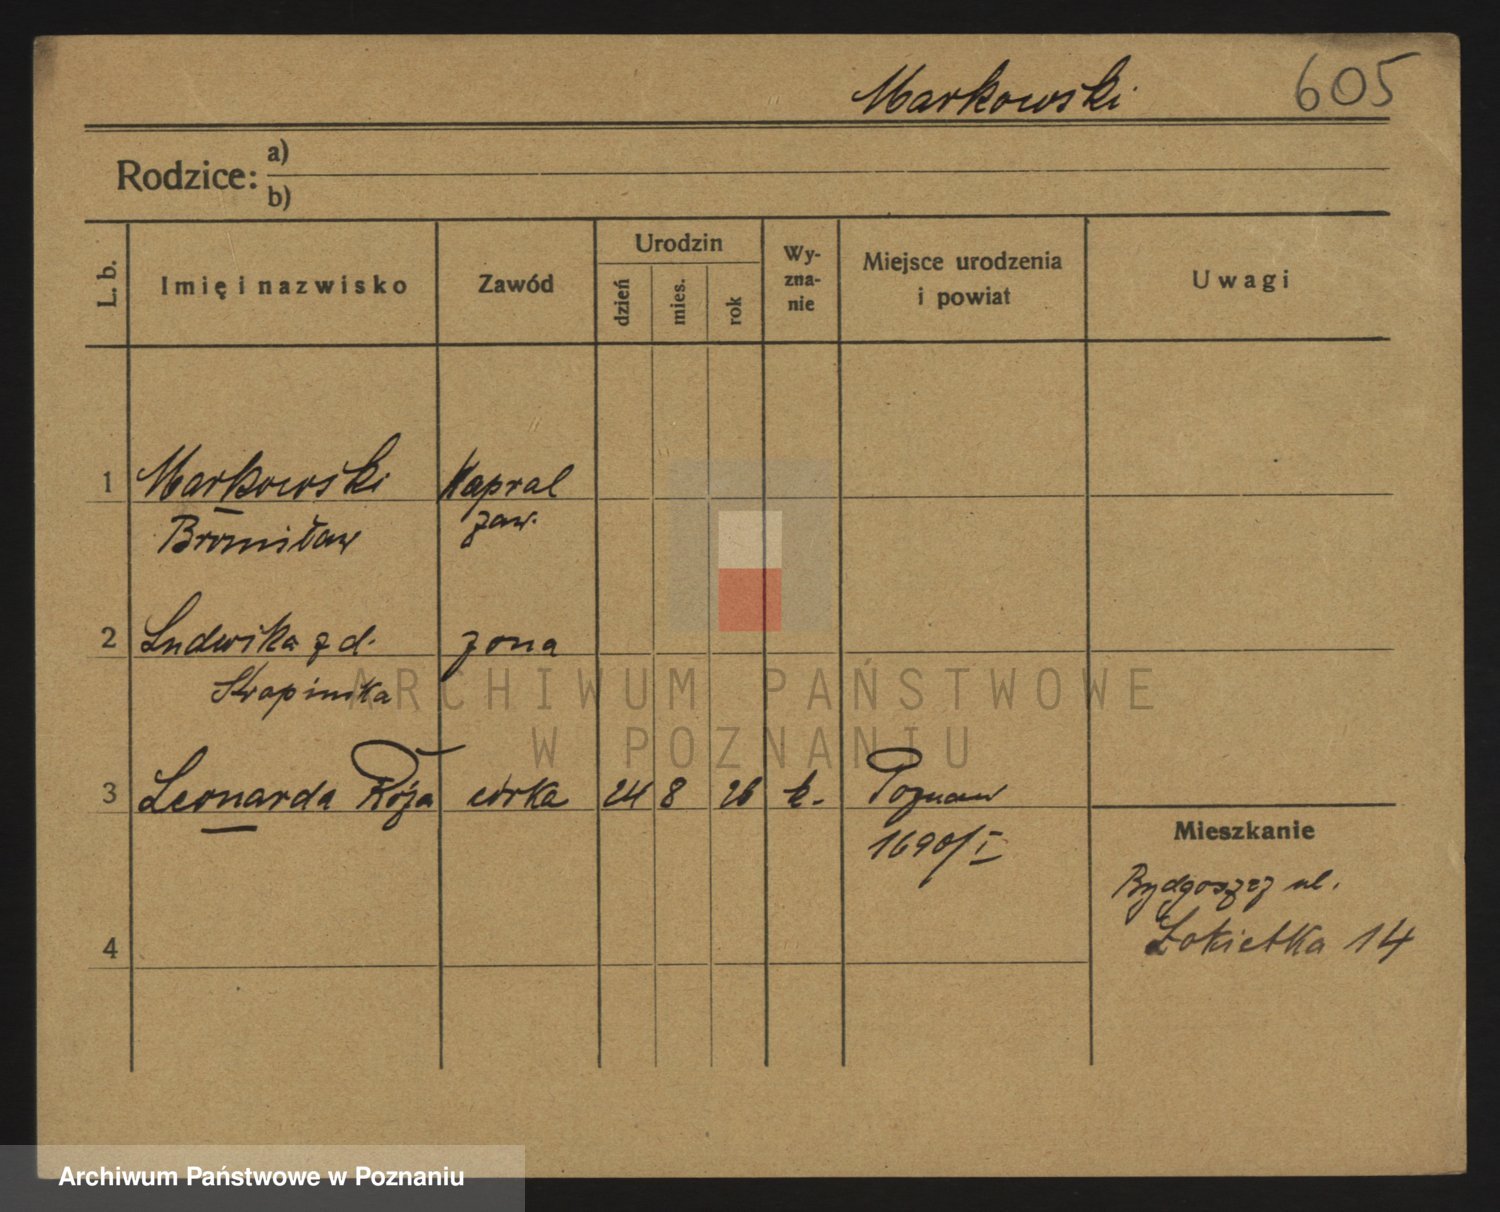 Markowski 605
Rodzice: a)
b)
L. b. Imię i nazwisko Zawód Urodzin dzień mies. rok Wy-
zna-
nie Miejsce urodzenia
i powiat Uwagi
1 Markowski Kapral
Bronisław zaw.
2 Ludwika z d. żona
3 Leonarda Róża córka 24 8 26 k. Poznań
1690/I
Mieszkanie
Bydgoszcz ul.
Łokietka 14
4
ARCHIWUM PAŃSTWOWE
W POZNANIU
Archiwum Państwowe w Poznaniu